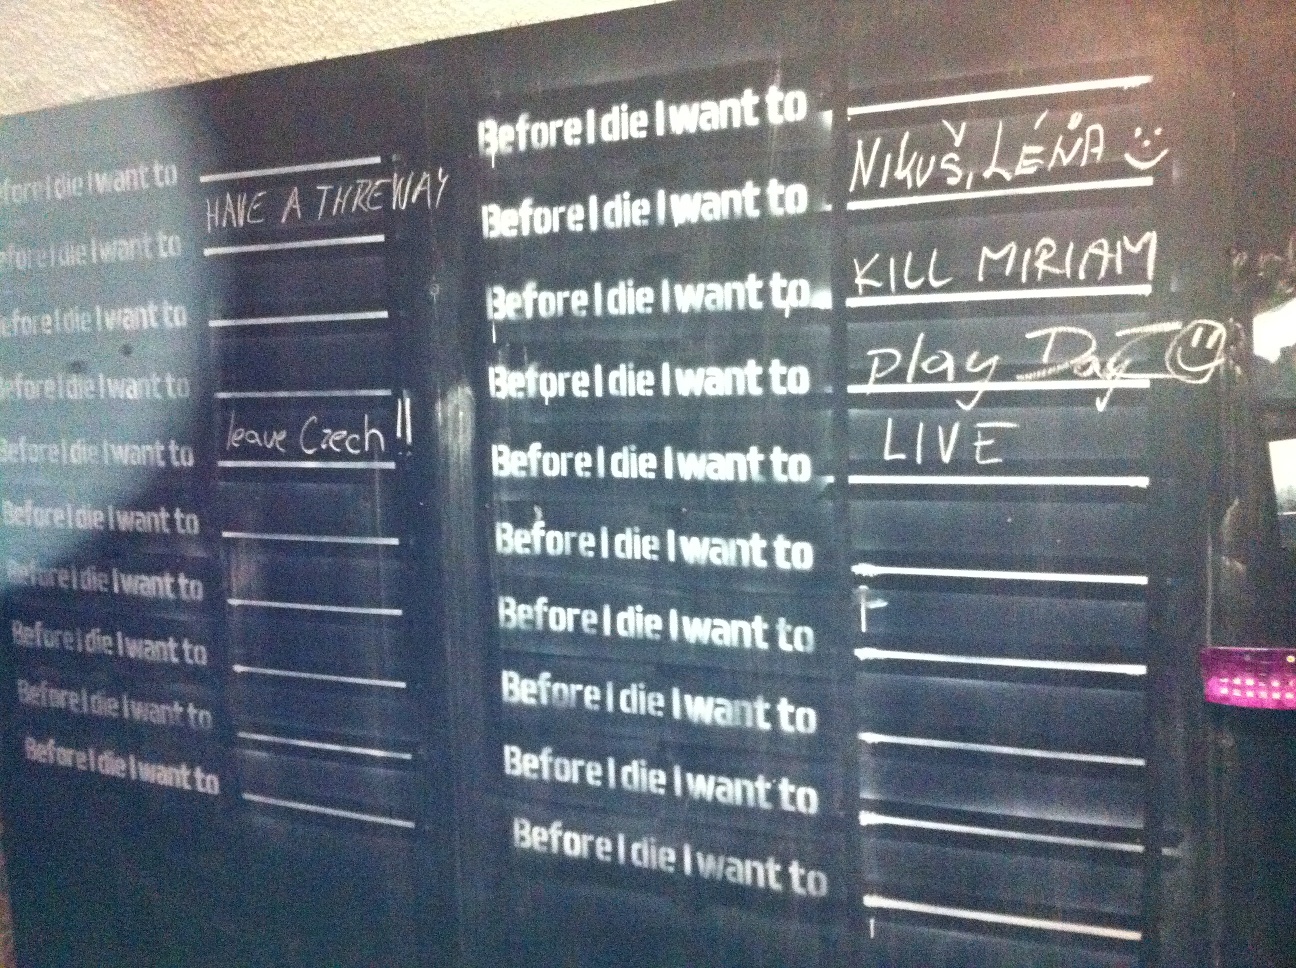 Before I die I want to
Before I die I want to HAVE A THREWAY
Before I die I want to
Before I die I want to
Before I die I want to leave Czech!!
Before I die I want to
Before I die I want to
Before I die I want to
Before I die I want to
Before I die I want to
Before I die I want to
Before I die I want to NIKUŠ, LÉŇA
Before I die I want to KILL MIRIAM
Before I die I want to play Day
Before I die I want to LIVE
Before I die I want to
Before I die I want to
Before I die I want to
Before I die I want to
Before I die I want to